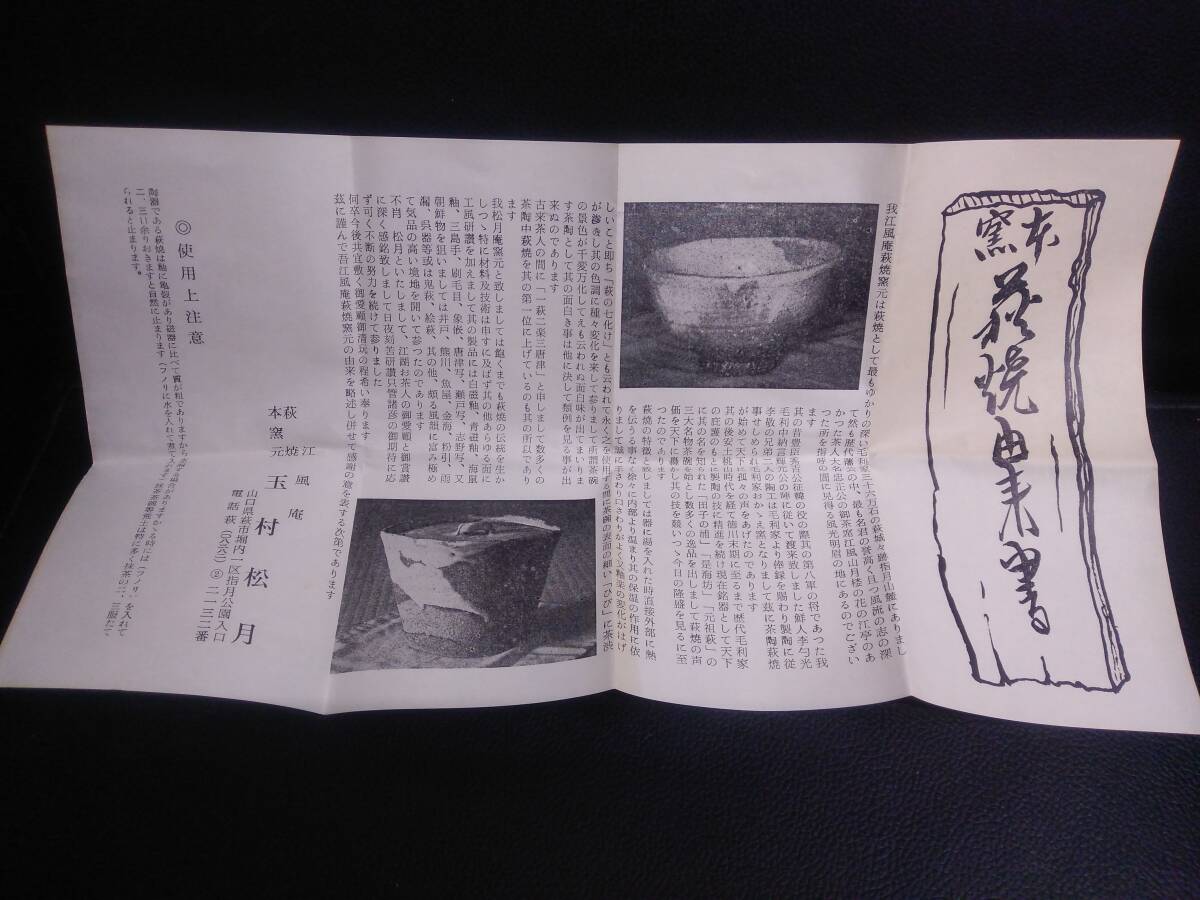 本窯 萩焼由来書
我江風庵萩焼窯元は萩焼として最もゆかりの深い毛利家三十六万石の萩城々趾指月山麓にありまし
て然も歴代藩公の中、最も名君の誉高く且つ風流の志の深
かつた茶人大名忠正公の御茶席江風山月楼の花の江亭のあ
つた所を指呼の間に見得る風光明眉の地にあるのでござい
ます
其の昔豊臣秀吉公征韓の役の際其の第八軍の将であつた我
毛利中納言輝元公の陣に従いて渡来致しました鮮人李勺光
李敬の兄弟二人の陶工は毛利家より俸録を賜わり製陶に従
事せしめられ毛利家おかゝえ窯となりまして茲に茶陶萩焼
が始めて天下に孤々の声をあげたのであります
其の後安土桃山時代を経て徳川末期に至るまで歴代毛利家
の庇護のもとに製陶の技に精進を続け現在銘器として天下
に其の名を知られた「田子の浦」「是海坊」「元祖萩」の
三大名物茶碗を始とし数多くの逸品を出しまして萩焼の声
価を天下に轟かし其の技を競いつゝ今日の隆盛を見るに至
つたのであります
萩焼の特徴と致しましては器に湯を入れた時直接外部に熱
を伝うる事なく徐々に内部より温まり其の保温の作用に依
りまして誠に手ざわり口さわりがよく又釉薬の変化がはげ
しいこと即ち「萩の七化け」とも云われて永く之を使用する間に茶碗の表面の細い「ひび」に茶渋
が滲透し其の色調に種々変化を来して参りまして所謂茶碗
の景色が千変万化してえも云われぬ面白味が出てまいりま
す茶陶として其の面白き事は他に決して類例を見る事が出
来ぬのであります
古来茶人の間に「一萩二楽三唐津」と申しまして数多くの
茶陶中萩焼を其の第一位に上げているのも其の所以であり
ます
我松月庵窯元と致しましては飽くまでも萩焼の伝統を生か
しつゝ特に材料及技術は申すに及ばず其の他あらゆる面に
工風研讃を加えまして其の製品には白磁釉、青磁釉、海鼠
釉、三島手、刷毛目、象嵌、唐津写、瀬戸写、志野写、又
朝鮮物を狙いましては井戸、熊川、魚屋、金海、粉引、雨
漏、呉器等或は鬼萩、絵萩、其の他、頗る風韻に富み極め
て気品の高い境地を開いて参つたのであります
不肖 松月といたしまして、江湖お茶人の御愛顧と御賞讃
に深く感銘致しまして日夜刻苦研讃只管諸彦の御期待に応
ず可く不断の努力を続けて参りました
何卒今後共宜敷く御愛顧御清玩の程希い奉ります
茲に謹んで吾江風庵萩焼窯元の由来を略述し併せて感謝の意を表する次第であります
萩焼 江風庵
本窯元 玉村松月
山口県萩市堀内一区指月公園入口
電話萩(〇八三八二)②二一三二番
◎使用上注意
陶器である萩焼は釉に亀裂があり磁器に比べて質が粗でありますから洩る場合がありますかゝる時には(フノリ)を入れて
二、三日余りおきますと自然に止まります(フノリに水を入れて煮て下さい)抹茶茶碗等荒土は特に多く抹茶の二、三服たて
られると止まります。